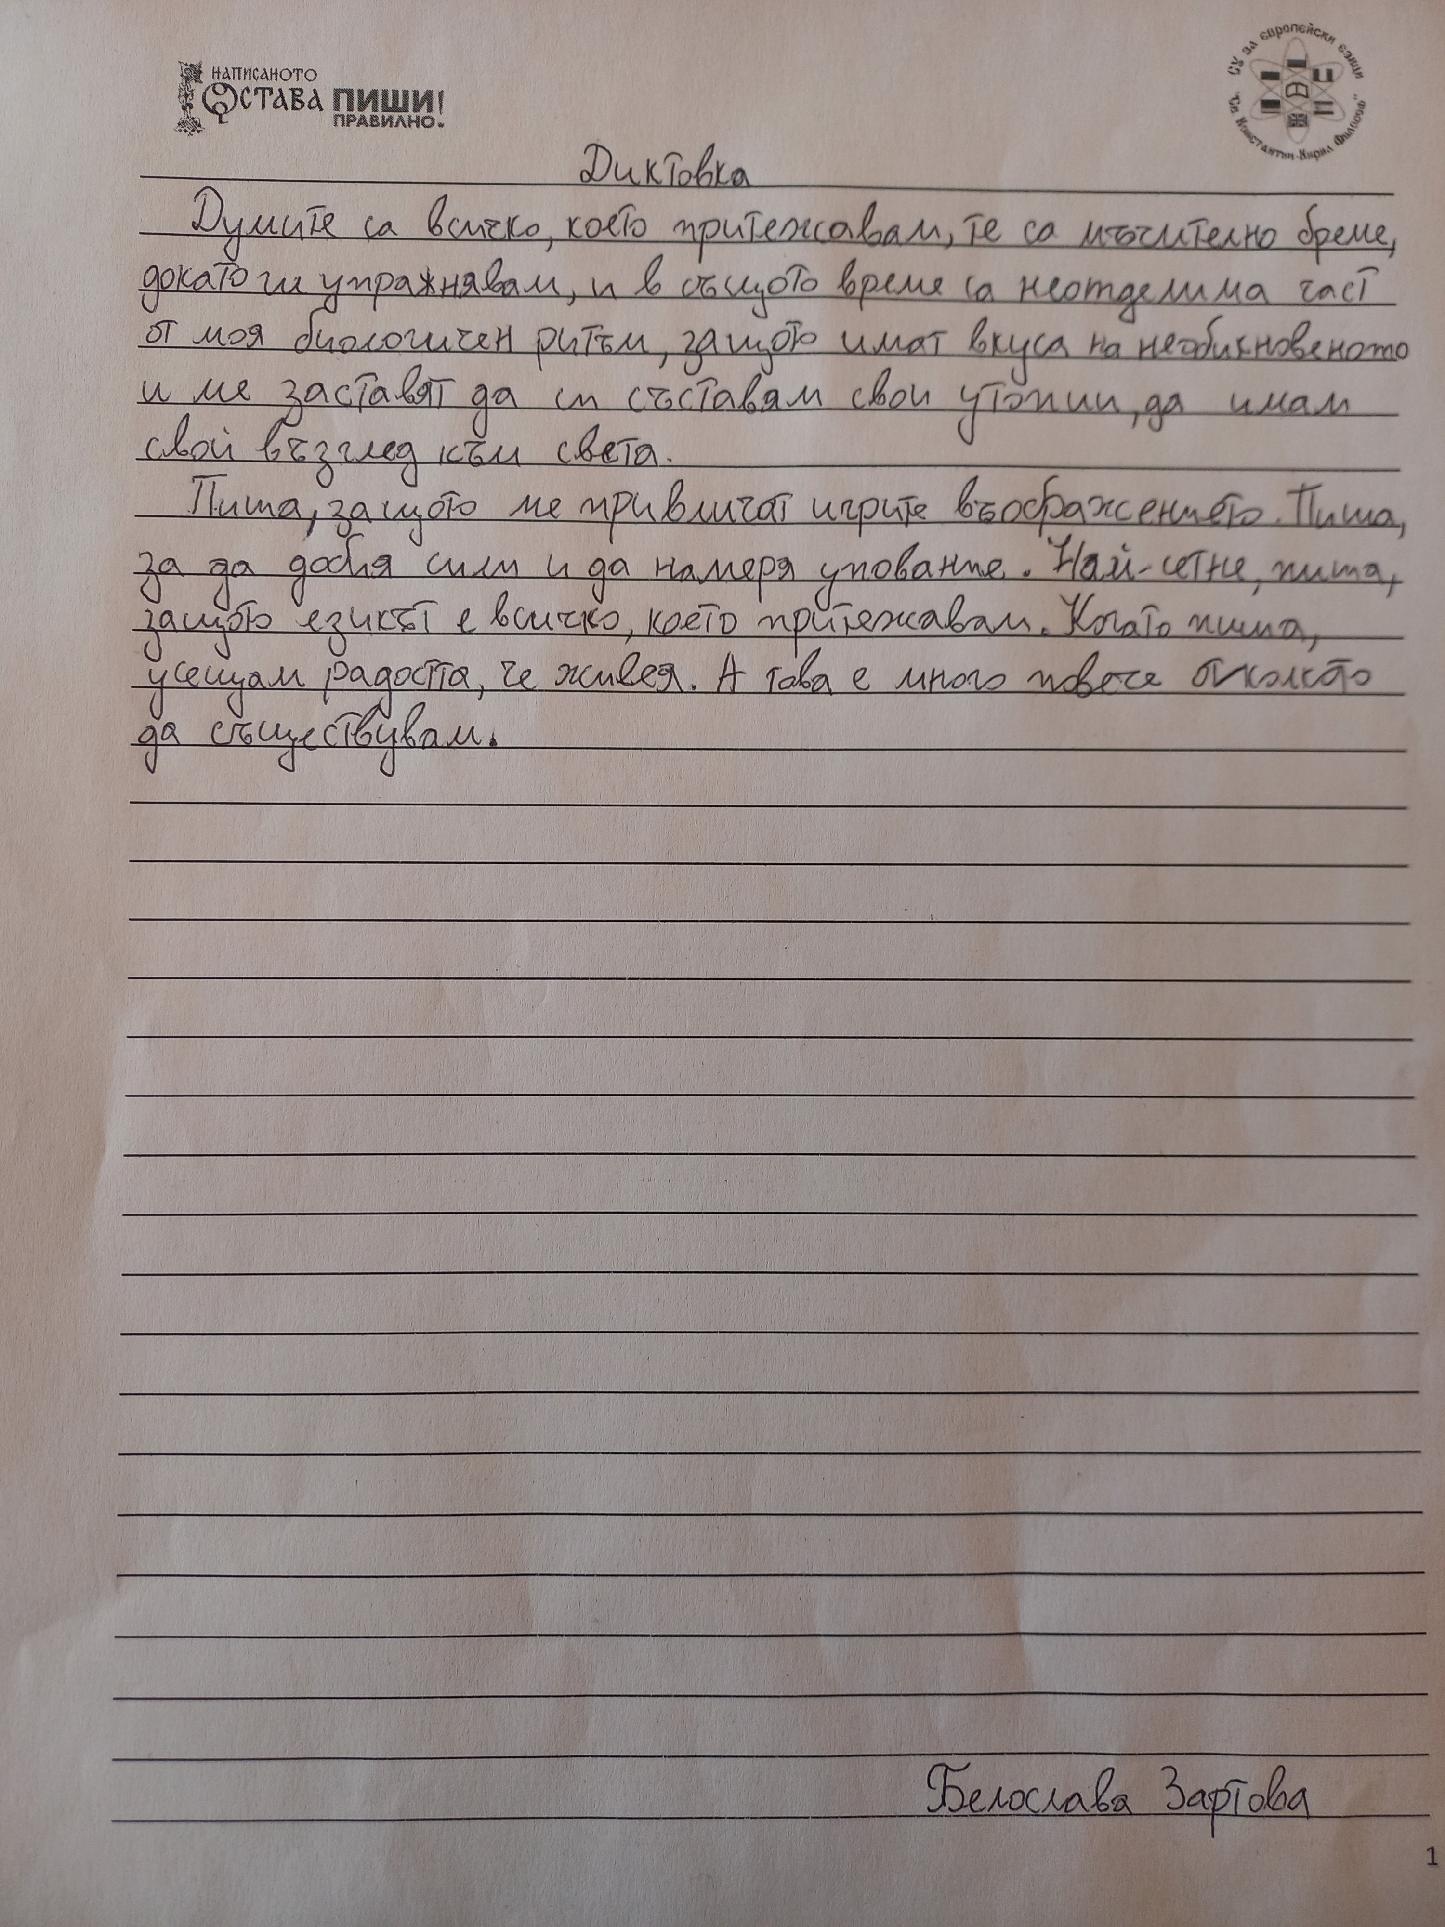 НАПИСАНОТО
ОСТАВА ПИШИ!
ПРАВИЛНО.
СУ за европейски езици
"Св. Константин-Кирил Философ"
Диктовка
Думите са всичко, което притежавам, те са мъчително бреме,
докато ги упражнявам, и в същото време са неотделима част
от моя биологичен ритъм, защото имат вкуса на необикновеното
и ме заставят да си съставям свои утопии, да имам
свой възглед към света.
Пиша, защото ме привличат игрите въображението. Пиша,
за да добия сили и да намеря упование. Най-сетне, пиша,
защото езикът е всичко, което притежавам. Когато пиша,
усещам радостта, че живея. А това е много повече отколкото
да съществувам.
Белослава Зартова
1